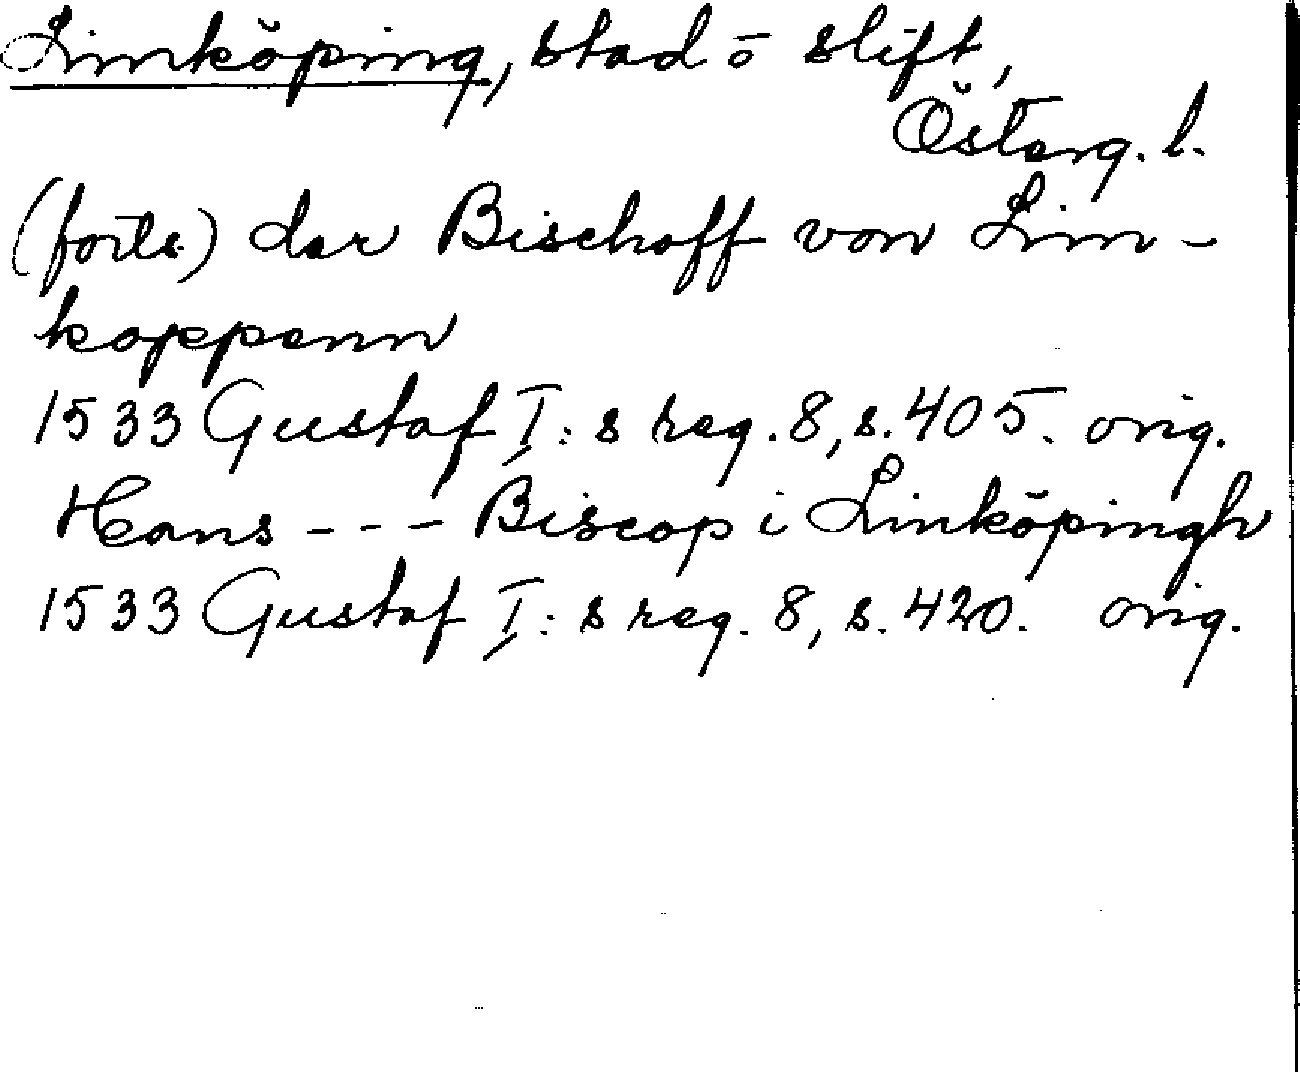 Linköping, stad o stift,
Österg. l.
(forts.) der Bischoff von Lin-
koppenn
1533 Gustaf I:s reg. 8, s. 405. orig.
Hans - - - Biscop i Linköpingh
1533 Gustaf I:s reg. 8, s. 420. orig.